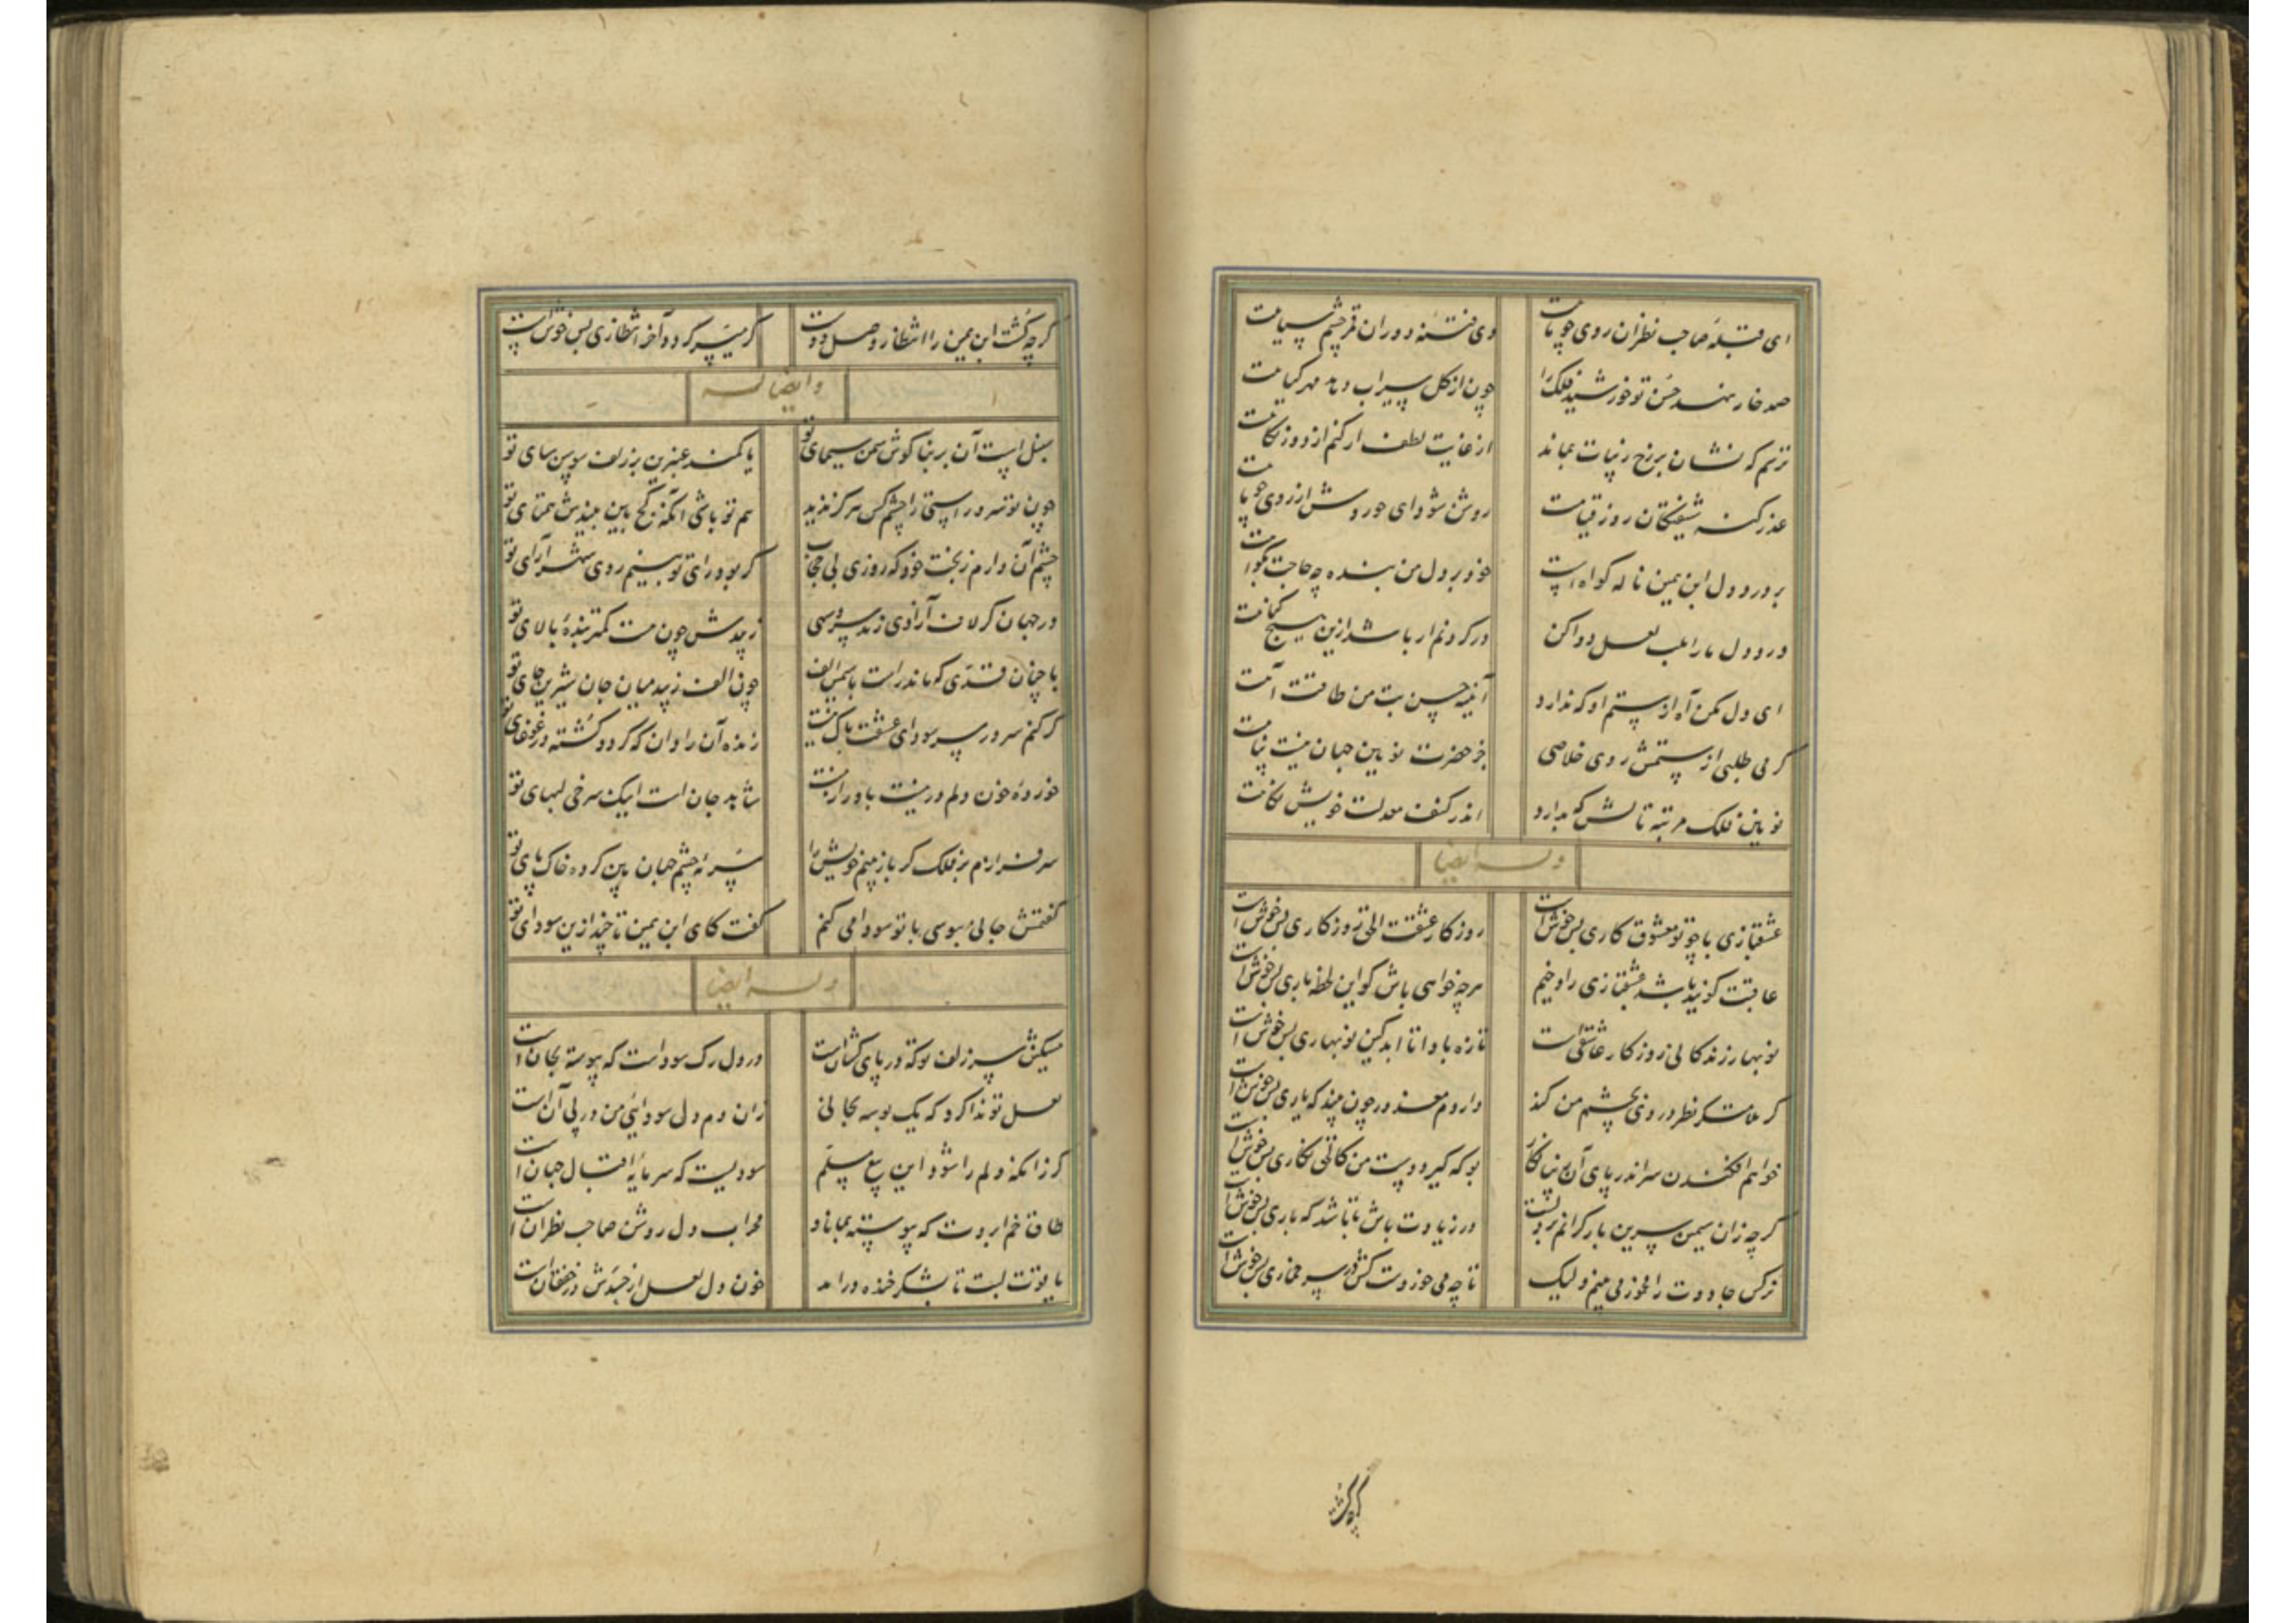 ای قبلهٔ صاحب نظران روی چو ماهت وی فتنهٔ دوران قمر چشم سیاهت
صد خار نهد حسن تو خورشید فلک را چون از گل سیراب دمد مهر گیاهت
ترسم که نشان بر رخ زیبات بماند از غایت لطف ار کنم از دور نگاهت
عذر گنه شیفتگان روز قیامت روشن شود ای حوروش از روی چو ماهت
بر درد دل ابن یمین ناله گواه است خود بر دل من بنده چه حاجت بگواهت
درد دل ما را بلب لعل دوا کن در گردنم ار باشد ازین هیچ گناهت
ای دل مکن آه از ستم او که ندارد آئینه حسن بت من طاقت آهت
گر می طلبی از ستمش روی خلاصی جز حضرت نویین جهان نیست پناهت
نویین فلک مرتبه تالش که بدارد اندر کنف معدلت خویش نگاهت
وله ایضا
عشقبازی با چو تو معشوق کاری بس خوش است روزگار عشقت الحق روزگاری بس خوش است
عاقبت گویند باشد عشقبازی را وخیم هرچه خواهی باش گو این لحظه باری بس خوش است
نوبهار زندگانی روزگار عاشقی است تازه بادا تا ابد کین نوبهاری بس خوش است
گر ملامتگر نظر در وی بچشم من کند داردم معذور چون بیند که یاری بس خوش است
خواهم افکندن سر اندر پای آن زیبا نگار بو که گیرد دست من کالحق نگاری بس خوش است
گرچه زان سیمین سرین بار گرانم بر دلست ور زیادت باش تا باشد که باری بس خوش است
نرگس جادوت را مخمور می بینم ولیک تا چه می خوردست کش در سر خماری بس خوش است
گرچه گشت
گرچه گشت ابن یمین را انتظار وصل دوست گر میسر گردد آخر انتظاری بس خوش است
وایضا له
سنبل است آن بر بناگوش سمن سیمای تو یا کمند عنبرین بر زلف سوسن سای تو
چون تو سرو راستی را چشم کس هرگز ندید هم تو باشی آنکه کج بین بیندش همتای تو
چشم آن دارم ز بخت خود که روزی بی حجاب گر بود رای تو بینم روی شهرآرای تو
در جهان گر لاف آزادی زند سرو سهی زیبدش چون هست کمتر بندهٔ بالای تو
با چنان قدی که ماند راست با سیمین الف چون الف زیبد میان جان شیرین جای تو
گر کنم سر در سر سودای عشقت باک نیست زنده آن را دان که گردد کشته در غوغای تو
خوردهٔ خون دلم ور نیست باور ازمنت شاهد جان است اینک سرخی لبهای تو
سرفرازم بر فلک گر باز بینم خویش را سرمهٔ چشم جهان بین کرده خاک پای تو
گفتمش جانی ببوسی با تو سودا می کنم گفت کای ابن یمین تا چند ازین سودای تو
وله ایضا
مسکین سر زلف تو که در پای کشانست در دل رگ سوداست که پیوسته بجان است
لعل تو ندا کرد که یک بوسه بجانی زان دم دل سودائی من در پی آن است
گر زانکه دلم را شود این بیع مسلم سودیست که سرمایهٔ اقبال جهان است
طاق خم ابروت که پیوسته بماناد محراب دل روشن صاحب نظران است
یاقوت لبت تا بشکر خنده درآمد خون دل لعل از حسدش در خفقان است